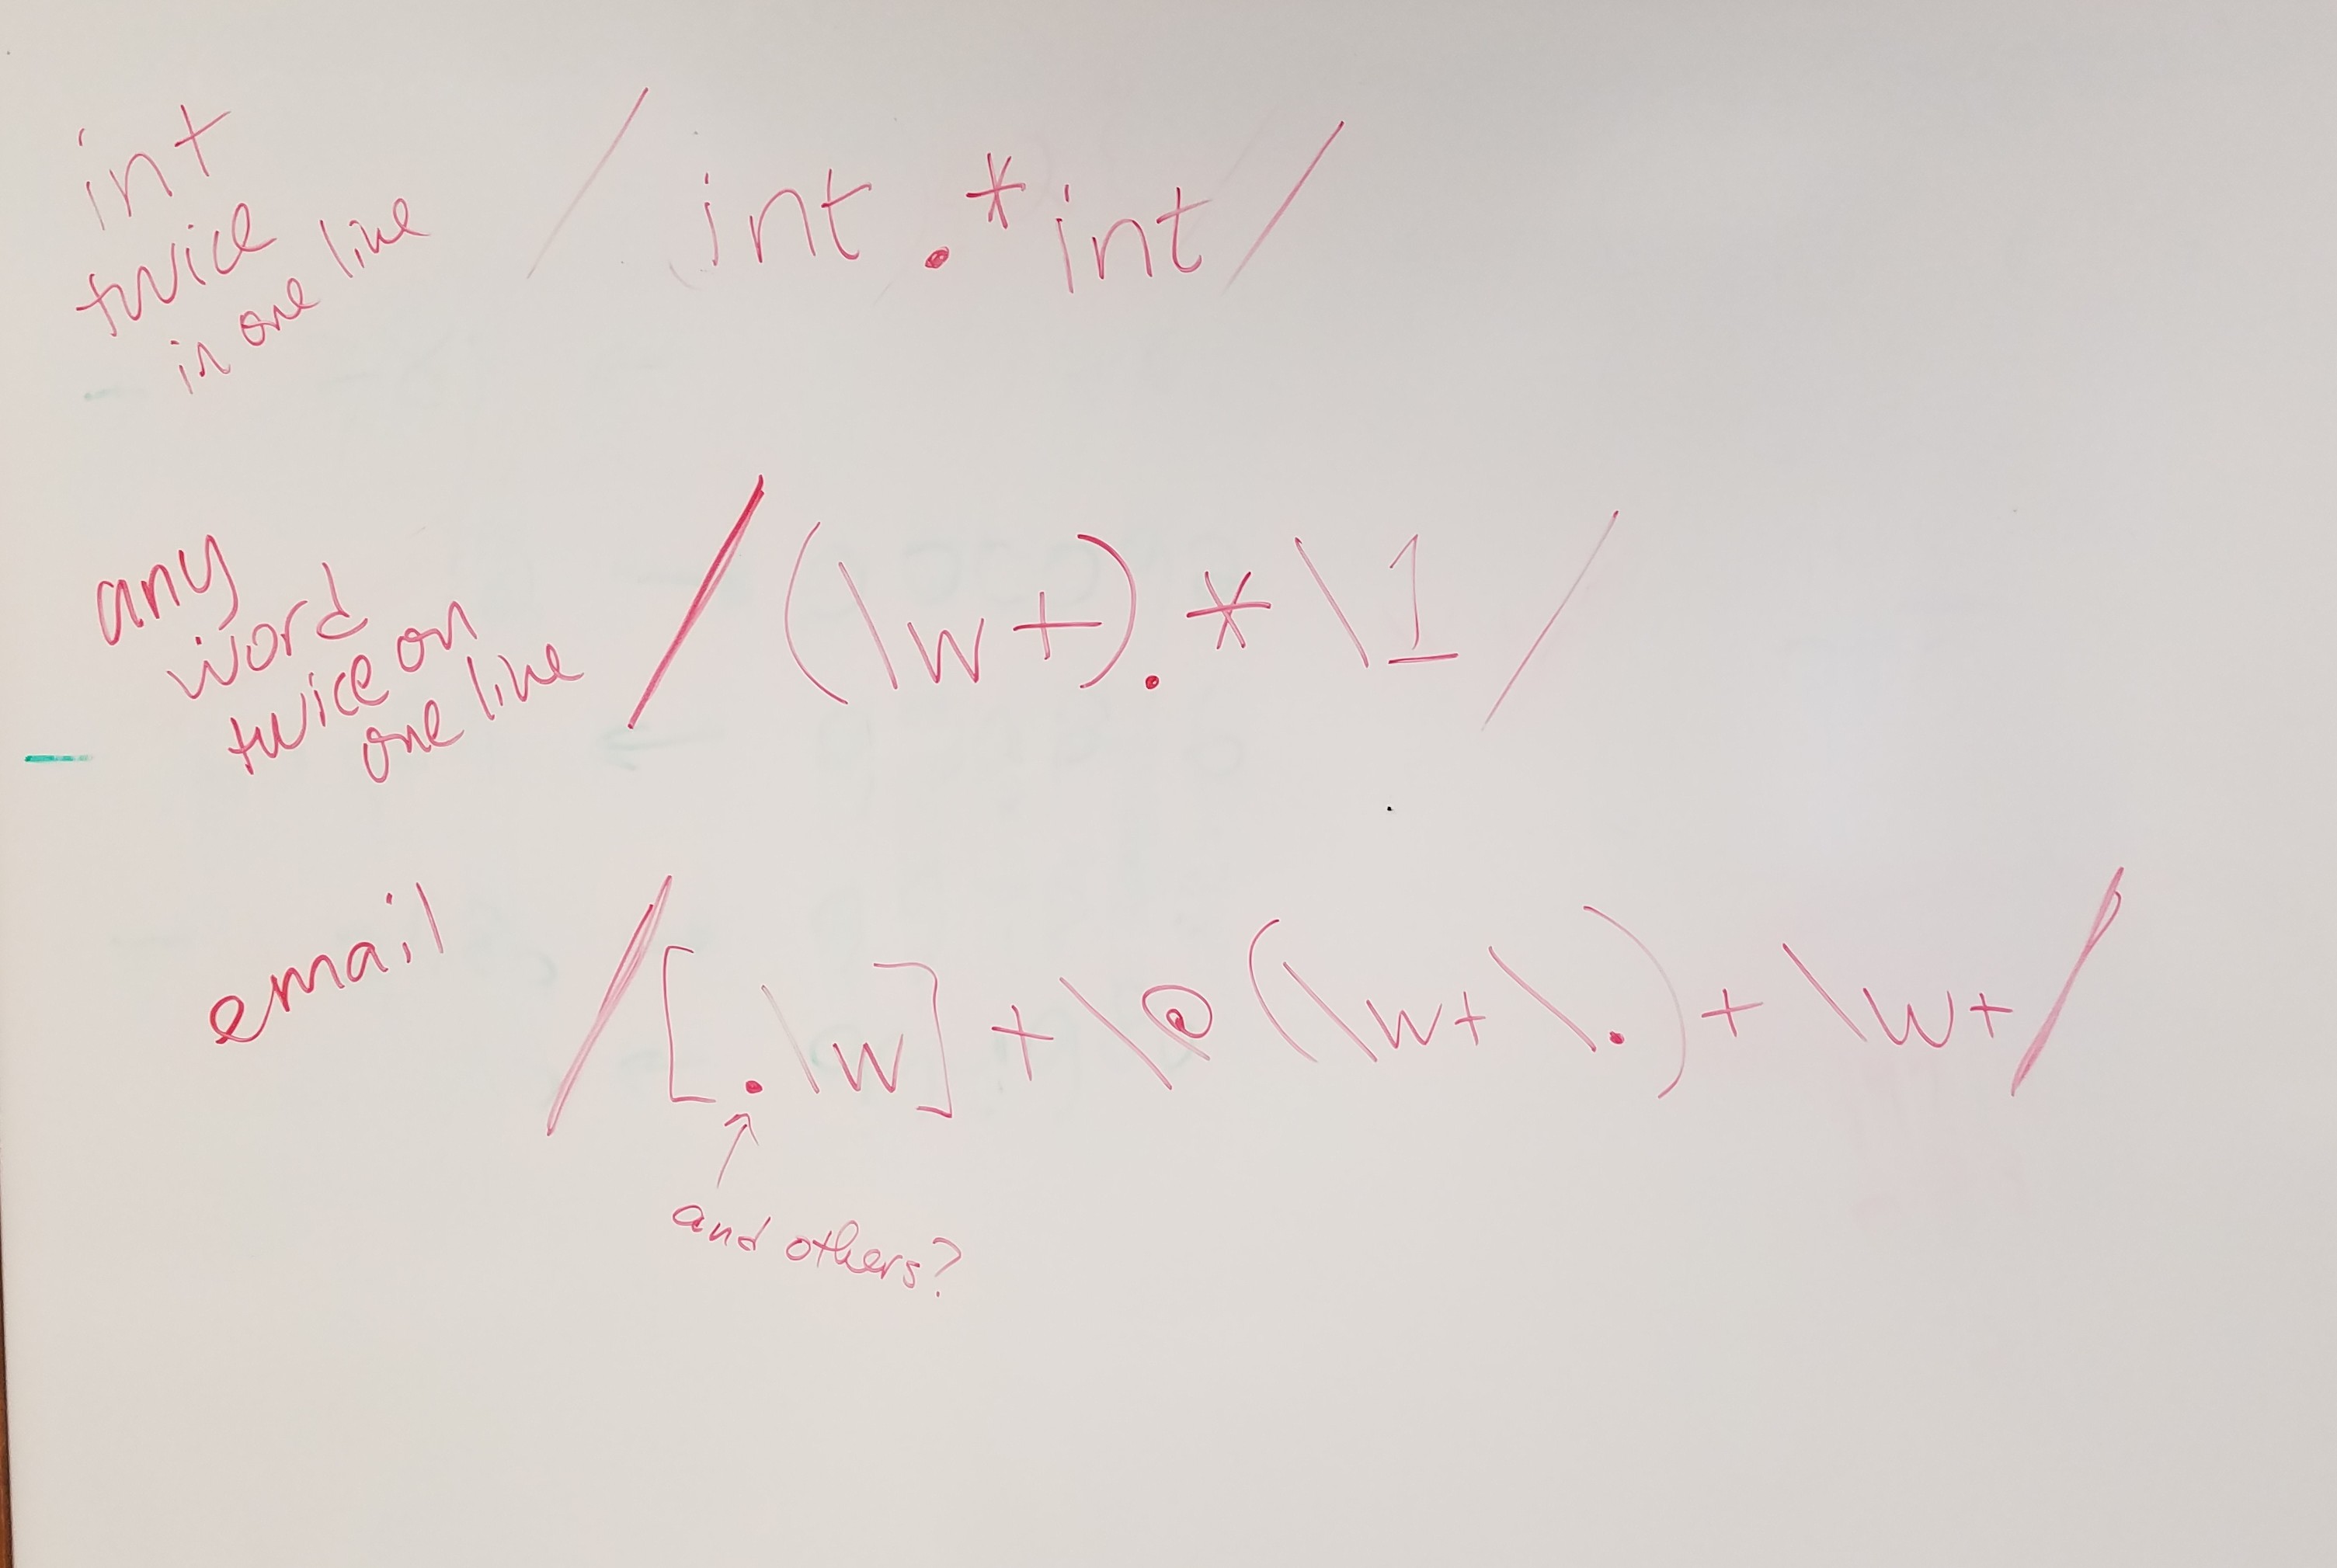 int
twice
in one line
/ int .* int /
any
word
twice on
one line
/ (\w+).* \1 /
email
/[.\w]+\@(\w+\.)+\w+/
↑
and others?